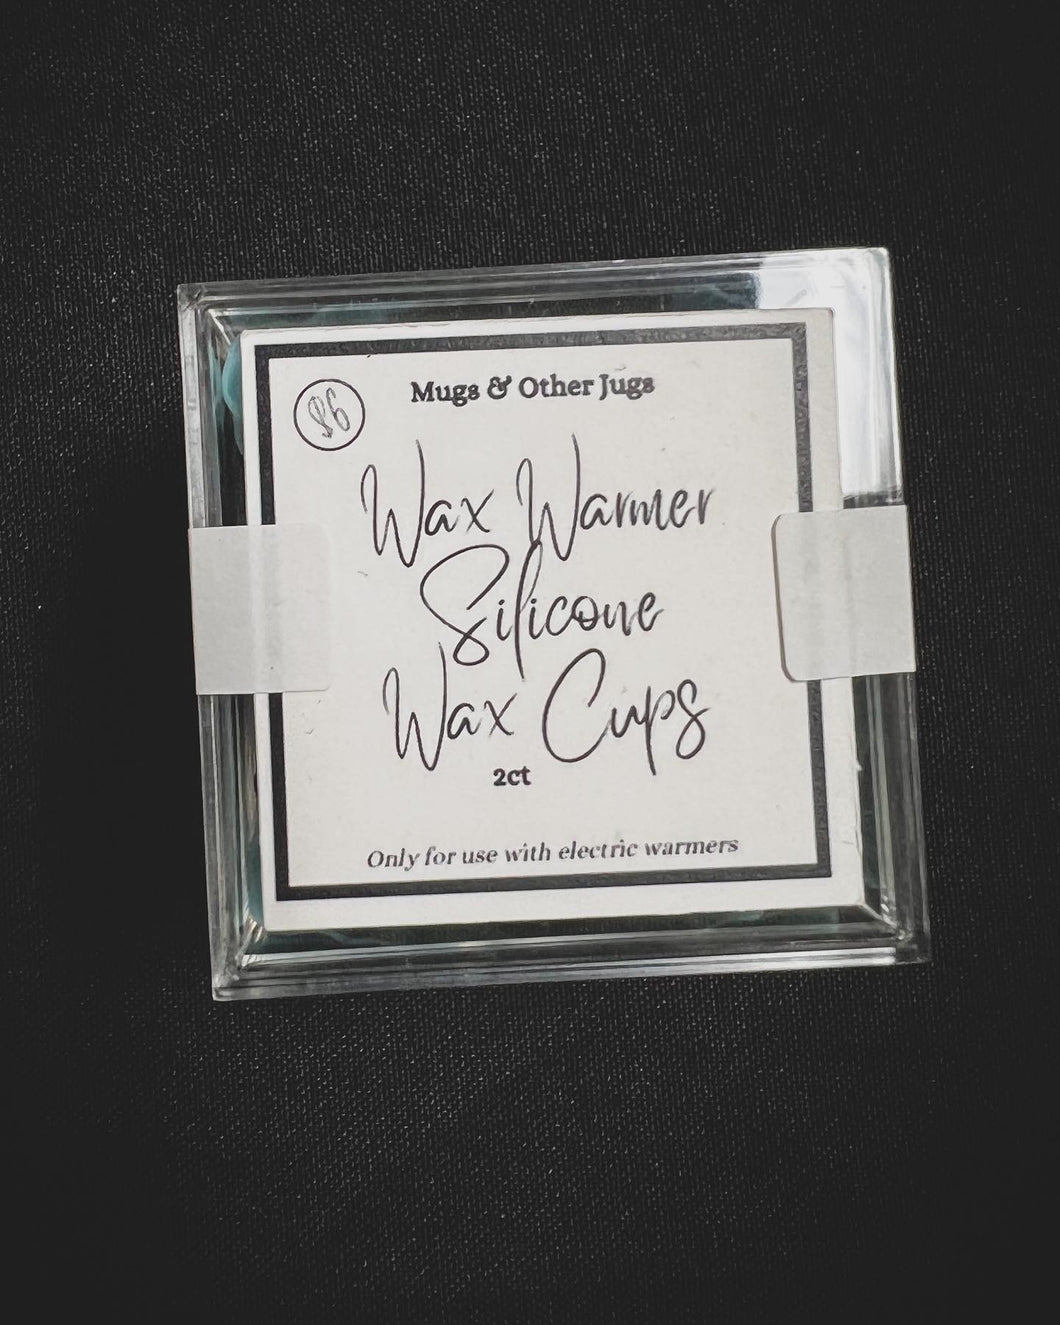 Mugs & Other Jugs
$6
Wax Warmer
Silicone
Wax Cups
2ct
Only for use with electric warmers